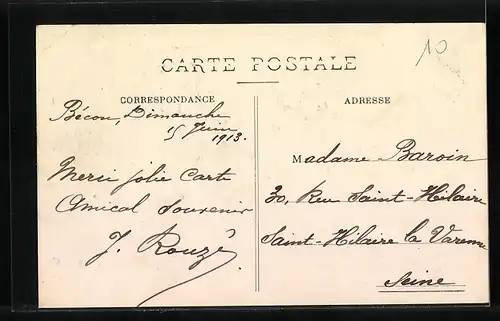 10
CARTE POSTALE
CORRESPONDANCE
ADRESSE
Bécon, Dimanche
15 Juin
1913.
Merci jolie Carte
Amical souvenir
J. Rouzé
Madame Baroin
30, Rue Saint-Hilaire
Saint-Hilaire la Varenne
Seine